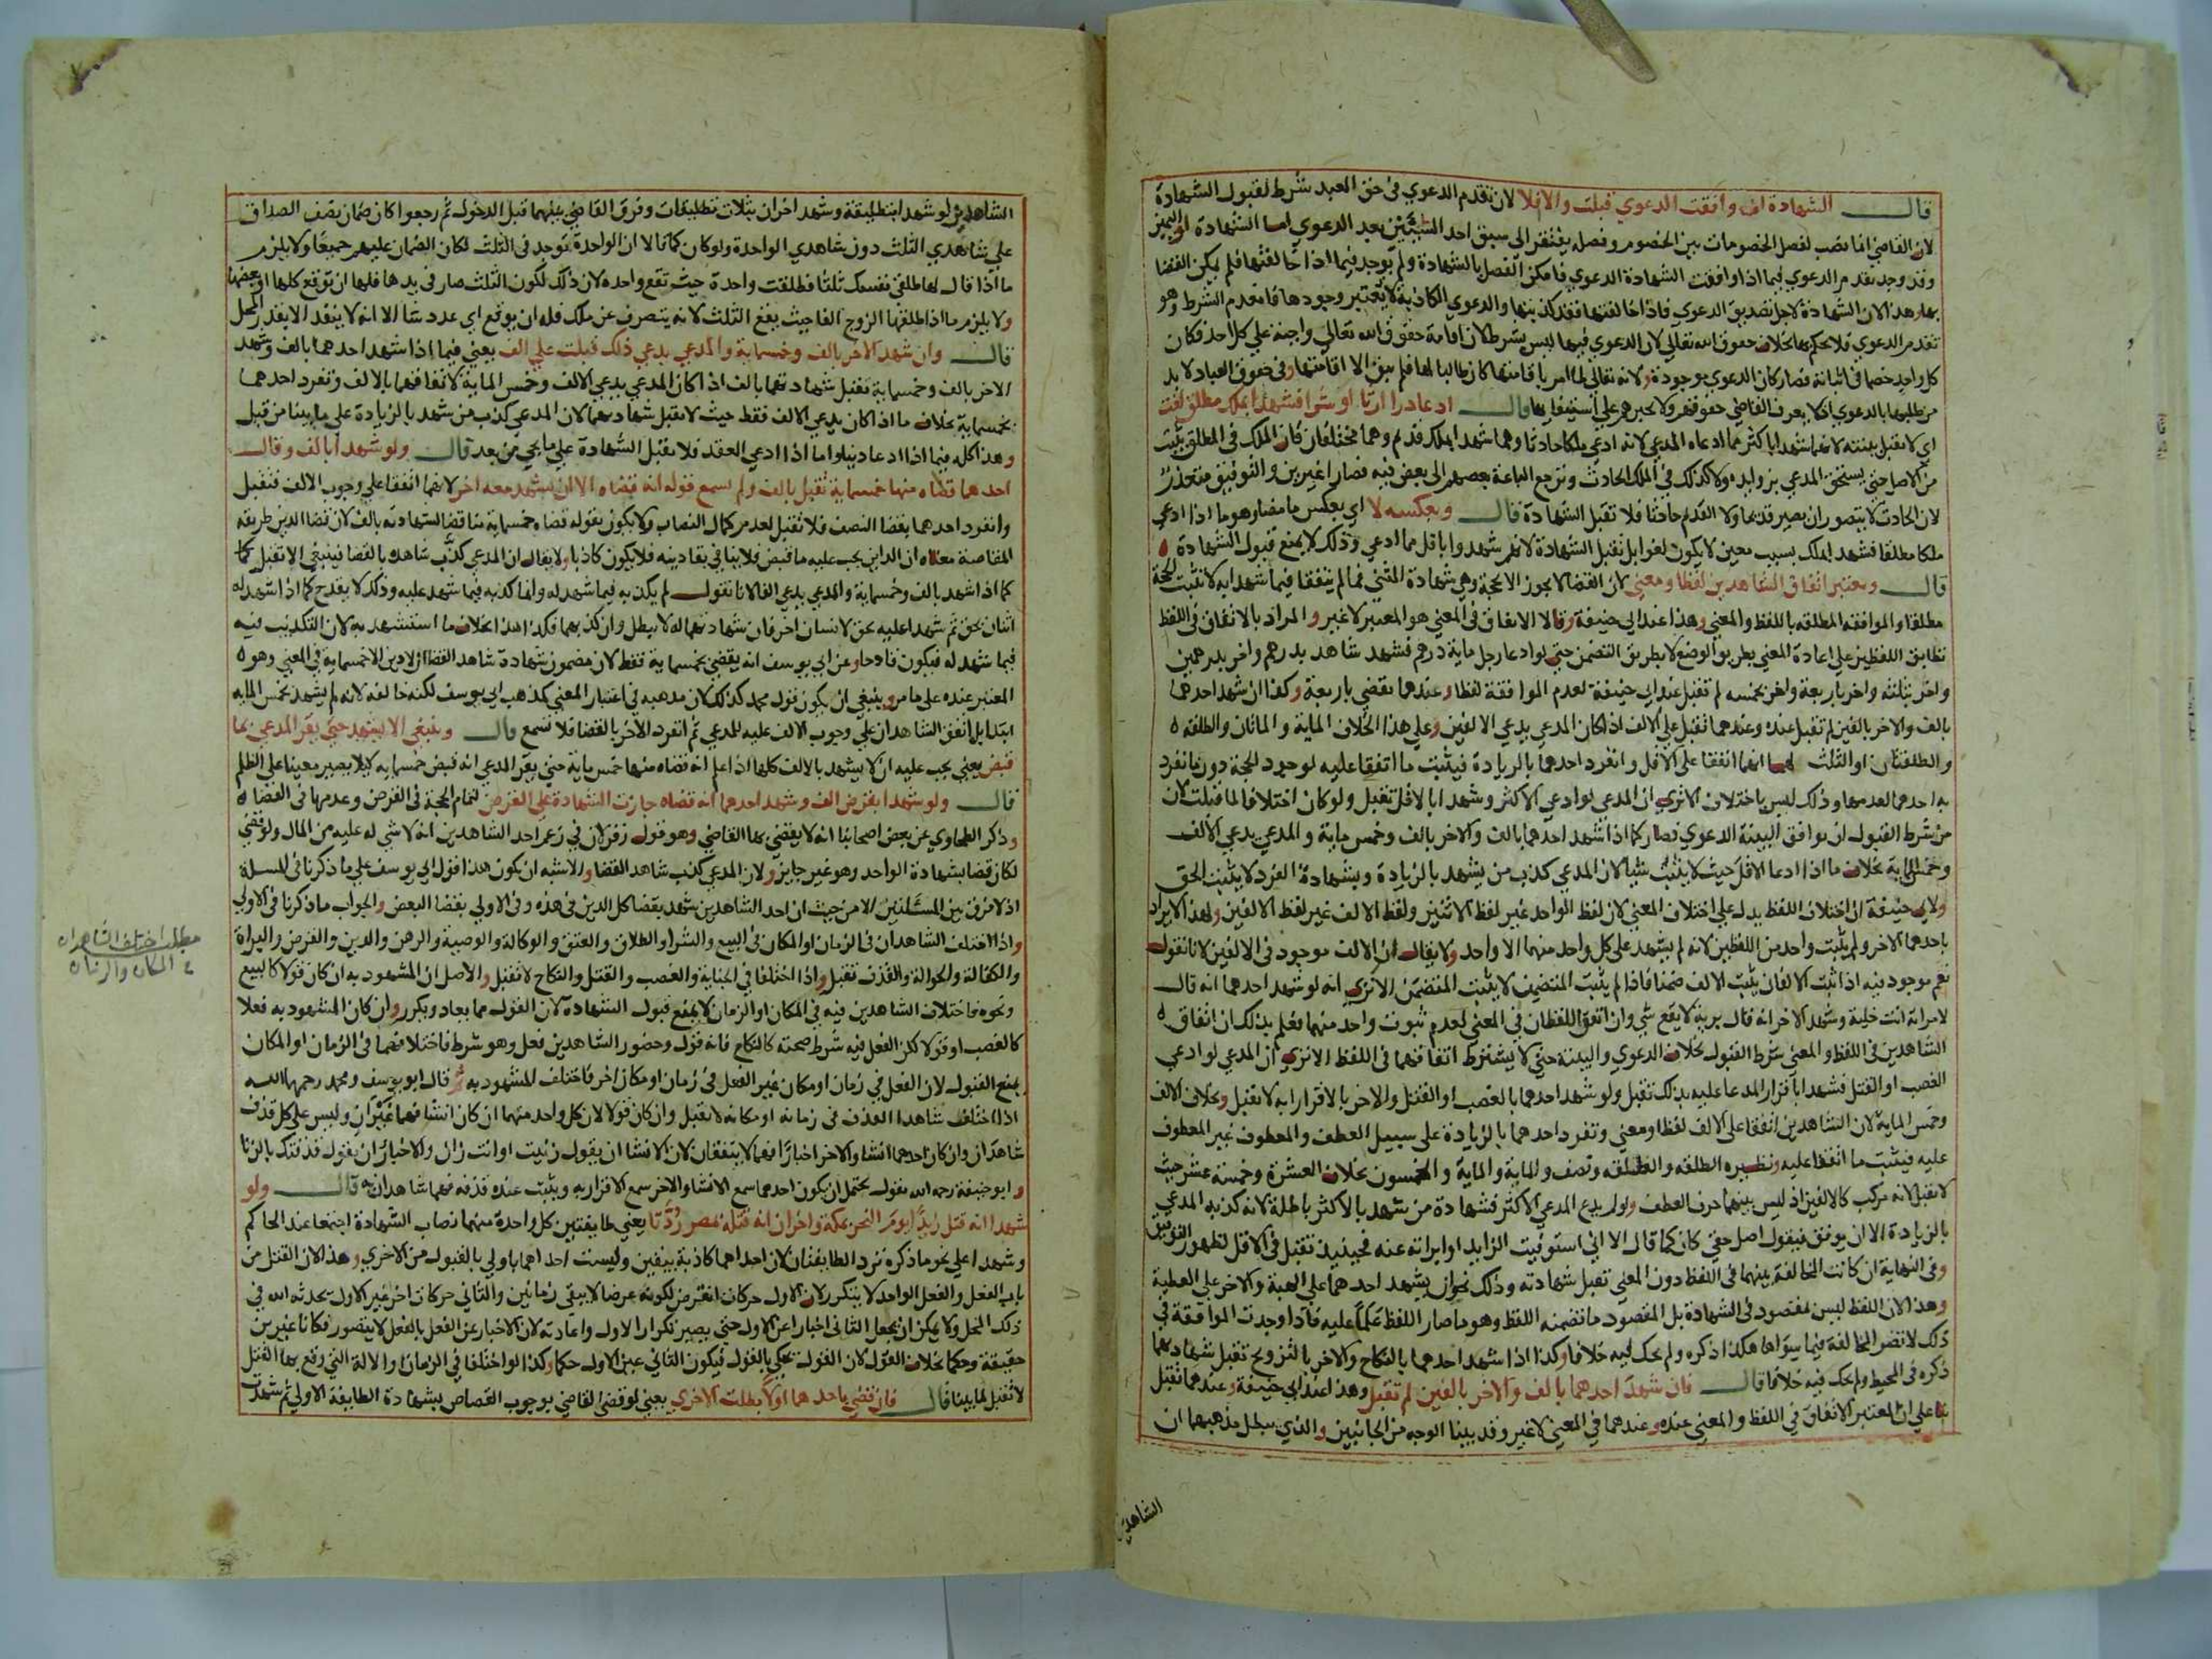 قال الشهادة ان وافقت الدعوي قبلت والا فلا لان تقدم الدعوي في حق العبد شرط لقبول الشهادة
لان القاضي انما نصب لفصل الخصومات بين الخصوم وفصله يفتقر الى سبق احد الشيئين بعد الدعوي اما الشهادة او اليمين
وقد وجد تقدم الدعوي فيما اذا وافقت الشهادة الدعوي فامكن الفصل بالشهادة ولم توجد فيما اذا خالفتها فلم يمكن القضا
بها وهذا لان الشهادة لاجل تصديق الدعوي فاذا خالفتها فقد كذبتها والدعوي الكاذبة لا يعتبر وجودها فانعدم الشرط وهو
تقدم الدعوي فلا يحكم بها بخلاف حقوق الله تعالى لان الدعوي فيها ليس بشرط لان اقامة حقوق الله تعالى واجبة علي كل احد فكان
كل واحد خصما في اثباته فصار كان الدعوي موجودة ولانه تعالى لما امر باقامتها كان طالبا لها فلم يبق الا اقامتها وفي حقوق العباد لا بد
من طلبها بالدعوي اذ لا يعرف القاضي حقوقهم ولا يجبرهم علي استيفايها قال ادعا دارا ارثا او شرا فشهدا بملك مطلق لغت
اي لا تقبل بينته لانهما شهدا باكثر مما ادعاه المدعي لانه ادعي ملكا حادثا وهما شهدا بملك قديم وهما مختلفان فان الملك في المطلق يثبت
من الاصل حتى يستحق المدعي بزوايده ولا كذلك في الملك الحادث وترجع الباعة بعضهم الى بعض فيه فصارا غيرين والتوفيق متعذر
لان الحادث لا يتصور ان يصير قديما ولا القديم حادثا فلا تقبل الشهادة قال وبعكسه لا اي بعكس ما مضا وهو ما اذا ادعي
ملكا مطلقا فشهدا بملك بسبب معين لا يكون لغوا بل تقبل الشهادة لانهم شهدوا باقل مما ادعي وذلك لا يمنع قبول الشهادة
قال ويعتبر اتفاق الشاهدين لفظا ومعني لان القضا لا يجوز الا بحجة وهي شهادة المثني فما لم يتفقا فيما شهدا به لا تثبت الحجة
مطلقا والموافقة المطلقة باللفظ والمعني وهذا عند ابي حنيفة وقالا الاتفاق في المعني هو المعتبر لا غير والمراد بالاتفاق في اللفظ
تطابق اللفظين علي افادة المعني بطريق الوضع لا بطريق التضمن حتى لو ادعا رجل ماية درهم فشهد شاهد بدرهم واخر بدرهمين
واخر بثلثة واخر باربعة واخر بخمسة لم تقبل عند ابي حنيفة لعدم الموافقة لفظا وعندهما يقضي باربعة وكذا ان شهد احدهما
بالف والاخر بالفين لم تقبل عنده وعندهما تقبل علي الالف اذا كان المدعي يدعي الالفين وعلي هذا الخلاف الماية والماتان والطلقة
والطلقتان او الثلث لهما انهما اتفقا علي الاقل وانفرد احدهما بالزيادة فيثبت ما اتفقا عليه لوجود الحجة دون ما انفرد
به احدهما لعدمها وذلك ليس باختلاف الا تري ان المدعي لو ادعي الاكثر وشهدا بالاقل تقبل ولو كان اختلافا لما قبلت لان
من شرط القبول ان توافق البينة الدعوي فصار كما اذا شهد احدهما بالف والاخر بالف وخمس ماية والمدعي يدعي الالف
وخمس الماية بخلاف ما اذا ادعا الاقل حيث لا يثبت شيا لان المدعي كذب من يشهد بالزيادة وبشهادة الفرد لا يثبت الحق
ولابي حنيفة ان اختلاف اللفظ يدل علي اختلاف المعني لان لفظ الواحد غير لفظ الاثنين ولفظ الالف غير لفظ الالفين ولهذا لا يراد
باحدهما الاخر ولم يثبت واحد من اللفظين لانه لم يشهد علي كل واحد منهما الا واحد ولا يقال ان الالف موجود في الالفين لانا نقول
نعم موجود فيه اذا ثبت الالفان يثبت الالف ضمنا فاذا لم يثبت المتضمن لا يثبت المتضمن الا تري انه لو شهد احدهما انه قال
لامراته انت خلية وشهد الاخر انه قال برية لا يقع شي وان اتفق اللفظان في المعني لعدم ثبوت واحد منهما فعلم بذلك ان اتفاق
الشاهدين في اللفظ والمعني شرط القبول بخلاف الدعوي والبينة حتي لا يشترط اتفاقهما في اللفظ الا تري ان المدعي لو ادعي
الغصب او القتل فشهدا باقرار المدعا عليه بذلك تقبل ولو شهد احدهما بالغصب او القتل والاخر بالاقرار به لا تقبل وبخلاف الالف
وخمس الماية لان الشاهدين اتفقا علي الالف لفظا ومعني وتفرد احدهما بالزيادة علي سبيل العطف والمعطوف غير المعطوف
عليه فيثبت ما اتفقا عليه ونظيره الطلقة والطلقة ونصف والماية والماية والخمسون بخلاف العشرة وخمسة عشر حيث
لا تقبل لانه مركب كالالفين اذ ليس بينهما حرف العطف ولو لم يدع المدعي الاكثر فشهادة من شهد بالاكثر باطلة لانه كذبه المدعي
بالزيادة الا ان يوفق فيقول اصل حقي كان كما قال الا اني استوفيت الزايد او ابراته عنه فحينيذ تقبل في الاقل لظهور التوفيق
وفي النهاية ان كانت المخالفة بينهما في اللفظ دون المعني تقبل شهادته وذلك نحو ان يشهد احدهما علي الهبة والاخر علي العطية
وهذا لان اللفظ ليس بمقصود في الشهادة بل المقصود ما تضمنه اللفظ وهو ما صار اللفظ علما عليه فاذا وجدت الموافقة في
ذلك لا تضر المخالفة فيما سواها هكذا ذكره ولم يحك فيه خلافا وكذا اذا شهد احدهما بالنكاح والاخر بالتزويج تقبل شهادتهما
ذكره في المحيط ولم يحك فيه خلافا قال فان شهد احدهما بالف والاخر بالفين لم تقبل وهذا عند ابي حنيفة وعندهما تقبل
بنا علي ان المعتبر الاتفاق في اللفظ والمعني عنده وعندهما في المعني لا غير وقد بينا الوجه من الجانبين والذي يبطل مذهبهما ان
الشاهدين
الشاهدين لو شهدا بتطليقة وشهد اخران بثلاث تطليقات وفرق القاضي بينهما قبل الدخول ثم رجعوا كان ضمان نصف الصداق
علي شاهدي الثلث دون شاهدي الواحدة ولو كان كما قالا ان الواحدة توجد في الثلث لكان الضمان عليهم جميعا ولا يلزم
ما اذا قال لها طلقي نفسك ثلثا فطلقت واحدة حيث تقع واحدة لان ذلك لكون الثلث صار في يدها فلها ان توقع كلها او بعضها
ولا يلزم ما اذا طلقها الزوج الفا حيث يقع الثلث لانه يتصرف عن ملك فله ان يوقع اي عدد شا الا انه لا ينفذ الا بقدر المحل
قال وان شهد الاخر بالف وخمسماية والمدعي يدعي ذلك قبلت علي الف يعني فيما اذا شهد احدهما بالف وشهد
الاخر بالف وخمسماية تقبل شهادتهما بالف اذا كان المدعي يدعي الالف وخمس الماية لاتفاقهما بالالف وتفرد احدهما
بخمسماية بخلاف ما اذا كان يدعي الالف فقط حيث لا تقبل شهادتهما لان المدعي كذب من شهد بالزيادة علي ما بينا من قبل
وهذا كله فيما اذا ادعا دينا واما اذا ادعي العقد فلا تقبل الشهادة علي ما يجي من بعد قال ولو شهدا بالف وقال
احدهما قضاه منها خمسماية تقبل بالف ولم يسمع قوله انه قضاه الا ان يشهد معه اخر لانهما اتفقا علي وجوب الالف فتقبل
وانفرد احدهما بقضا النصف فلا تقبل لعدم كمال النصاب ولا يكون بقوله قضاه خمسماية مناقضا لشهادته بالف لان قضا الدين طريقه
المقاصة معناه ان الداين يجب عليه ما قبض فلا ينافي بقا دينه فلا يكون كاذبا ولا يقال ان المدعي كذب شاهده بالقضا فينبغي الا تقبل كما
كما اذا شهد بالف وخمسماية والمدعي يدعي الفا لانا نقول لم يكذبه فيما شهد له وانما كذبه فيما شهد عليه وذلك لا يقدح كما اذا شهد له
اثنان بحق ثم شهدا عليه بحق لانسان اخر فان شهادتهما له لا تبطل وان كذبهما فكذا هذا بخلاف ما استشهد به لان التكذيب فيه
فيما شهد له فيكون قادحا وعن ابي يوسف انه يقضي بخمسماية فقط لان مضمون شهادة شاهد القضا ان لا دين الا خمسماية في المعني وهو
المعتبر عنده علي ما مر وينبغي ان يكون قول محمد كذلك لان مذهبه في اعتبار المعني كمذهب ابي يوسف لكنه خالفه لانه لم يشهد بخمس الماية
ابتدا بل اتفق الشاهدان علي وجوب الالف عليه للمدعي ثم انفرد الاخر بالقضا فلا تسمع قال وينبغي الا يشهد حتى يقر المدعي بما
قبض يعني يجب عليه ان لا يشهد بالالف كلها اذا علم انه قضاه منها خمس ماية حتي يقر المدعي انه قبض خمسماية كيلا يصير معينا علي الظلم
قال ولو شهدا بقرض الف وشهد احدهما انه قضاه جازت الشهادة علي القرض لتمام الحجة في القرض وعدمها في القضا
وذكر الطحاوي عن بعض اصحابنا انه لا يقضي بها القاضي وهو قول زفر لان في زعم احد الشاهدين انه لا شي له عليه من المال ولو قضي
لكان قضا بشهادة الواحد وهو غير جايز ولان المدعي كذب شاهد القضا والاشبه ان يكون هذا قول ابي يوسف علي ما ذكرنا في المسلة
اذ لا فرق بين المسئلتين الا من حيث ان احد الشاهدين شهد بقضا كل الدين في هذه وفي الاولي بقضا البعض والجواب ما ذكرنا في الاولي
واذا اختلف الشاهدان في الزمان او المكان في البيع والشرا والطلاق والعتق والوكالة والوصية والرهن والدين والقرض والبراة
والكفالة والحوالة والقذف تقبل واذا اختلفا في الجناية والغصب والقتل والنكاح لا تقبل والاصل ان المشهود به ان كان قولا كالبيع
ونحوه فاختلاف الشاهدين فيه في المكان او الزمان لا يمنع قبول الشهادة لان القول مما يعاد ويكرر وان كان المشهود به فعلا
كالغصب او قولا لكن الفعل فيه شرط صحته كالنكاح فانه قول وحضور الشاهدين فعل وهو شرط فاختلافهما في الزمان او المكان
يمنع القبول لان الفعل في زمان او مكان غير الفعل في زمان او مكان اخر فاختلف المشهود به ثم قال ابو يوسف ومحمد رحمهما الله
اذا اختلف شاهدا القذف في زمانه او مكانه لا تقبل وان كان قولا لان كل واحد منهما ان كان انشا فهما غيران وليس علي كل قذف
شاهدان وان كان احدهما انشا والاخر اخبارا فهما لا يتفقان لان الانشا ان يقول زنيت او انت زان والاخبار ان يقول قذفتك بالزنا
وابو حنيفة رحمه الله يقول يحتمل ان يكون احدهما سمع الانشا والاخر سمع الاقرار به ويثبت عنده قذفه فهما شاهدان به قال ولو
شهدا انه قتل زيدا يوم النحر بمكة واخران انه قتله بمصر ردتا يعني طايفتين كل واحدة منهما نصاب الشهادة اجتمعا عند الحاكم
وشهدا علي نحو ما ذكره ترد الطايفتان لان احداهما كاذبة بيقين وليست احداهما باولي بالقبول من الاخري وهذا لان القتل من
باب الفعل والفعل الواحد لا يتكرر لان الاول حركات انقرض لكونه عرضا لا يبقي زمانين والثاني حركات اخر غير الاول يحدثه الله في
ذلك المحل ولا يمكن ان يجعل الثاني اخبارا عن الاول حتي يصير تكرار الاول واعادته لان الاخبار عن الفعل بالفعل لا يتصور فكانا غيرين
حقيقة وحكما بخلاف القول لان القول يحكي بالقول فيكون الثاني عين الاول حكما وكذا لو اختلفا في الزمان او الالة التي وقع بها القتل
لا تقبل لما بينا قال فان قضي باحدهما اولا بطلت الاخري يعني لو قضي القاضي بوجوب القصاص بشهادة الطايفة الاولي ثم شهدت
مطلب اختلف الشاهدان
في المكان والزمان